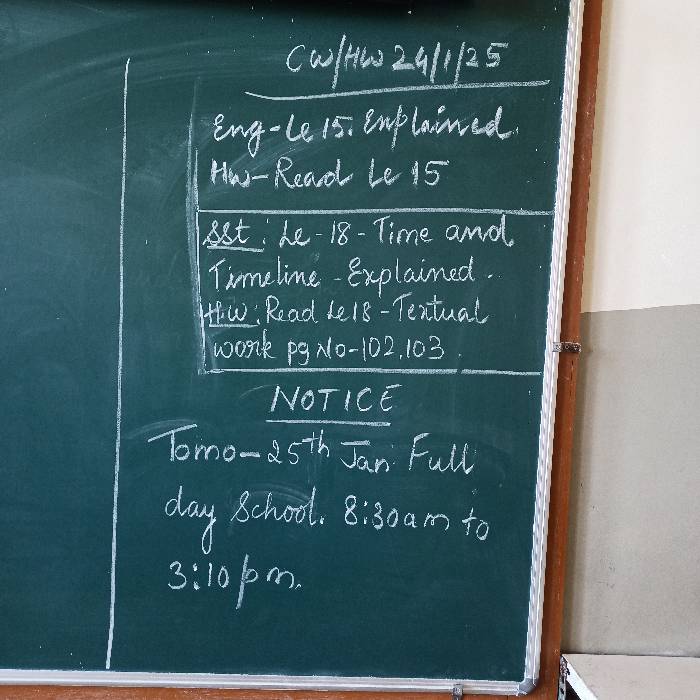 CW/HW 24/1/25
Eng-Le 15. Explained.
HW-Read Le 15
SSt : Le-18-Time and
Timeline-Explained.
HW: Read Le18-Textual
work pg No-102,103.
NOTICE
Tomo-25th Jan. Full
day School. 8:30am to
3:10pm.